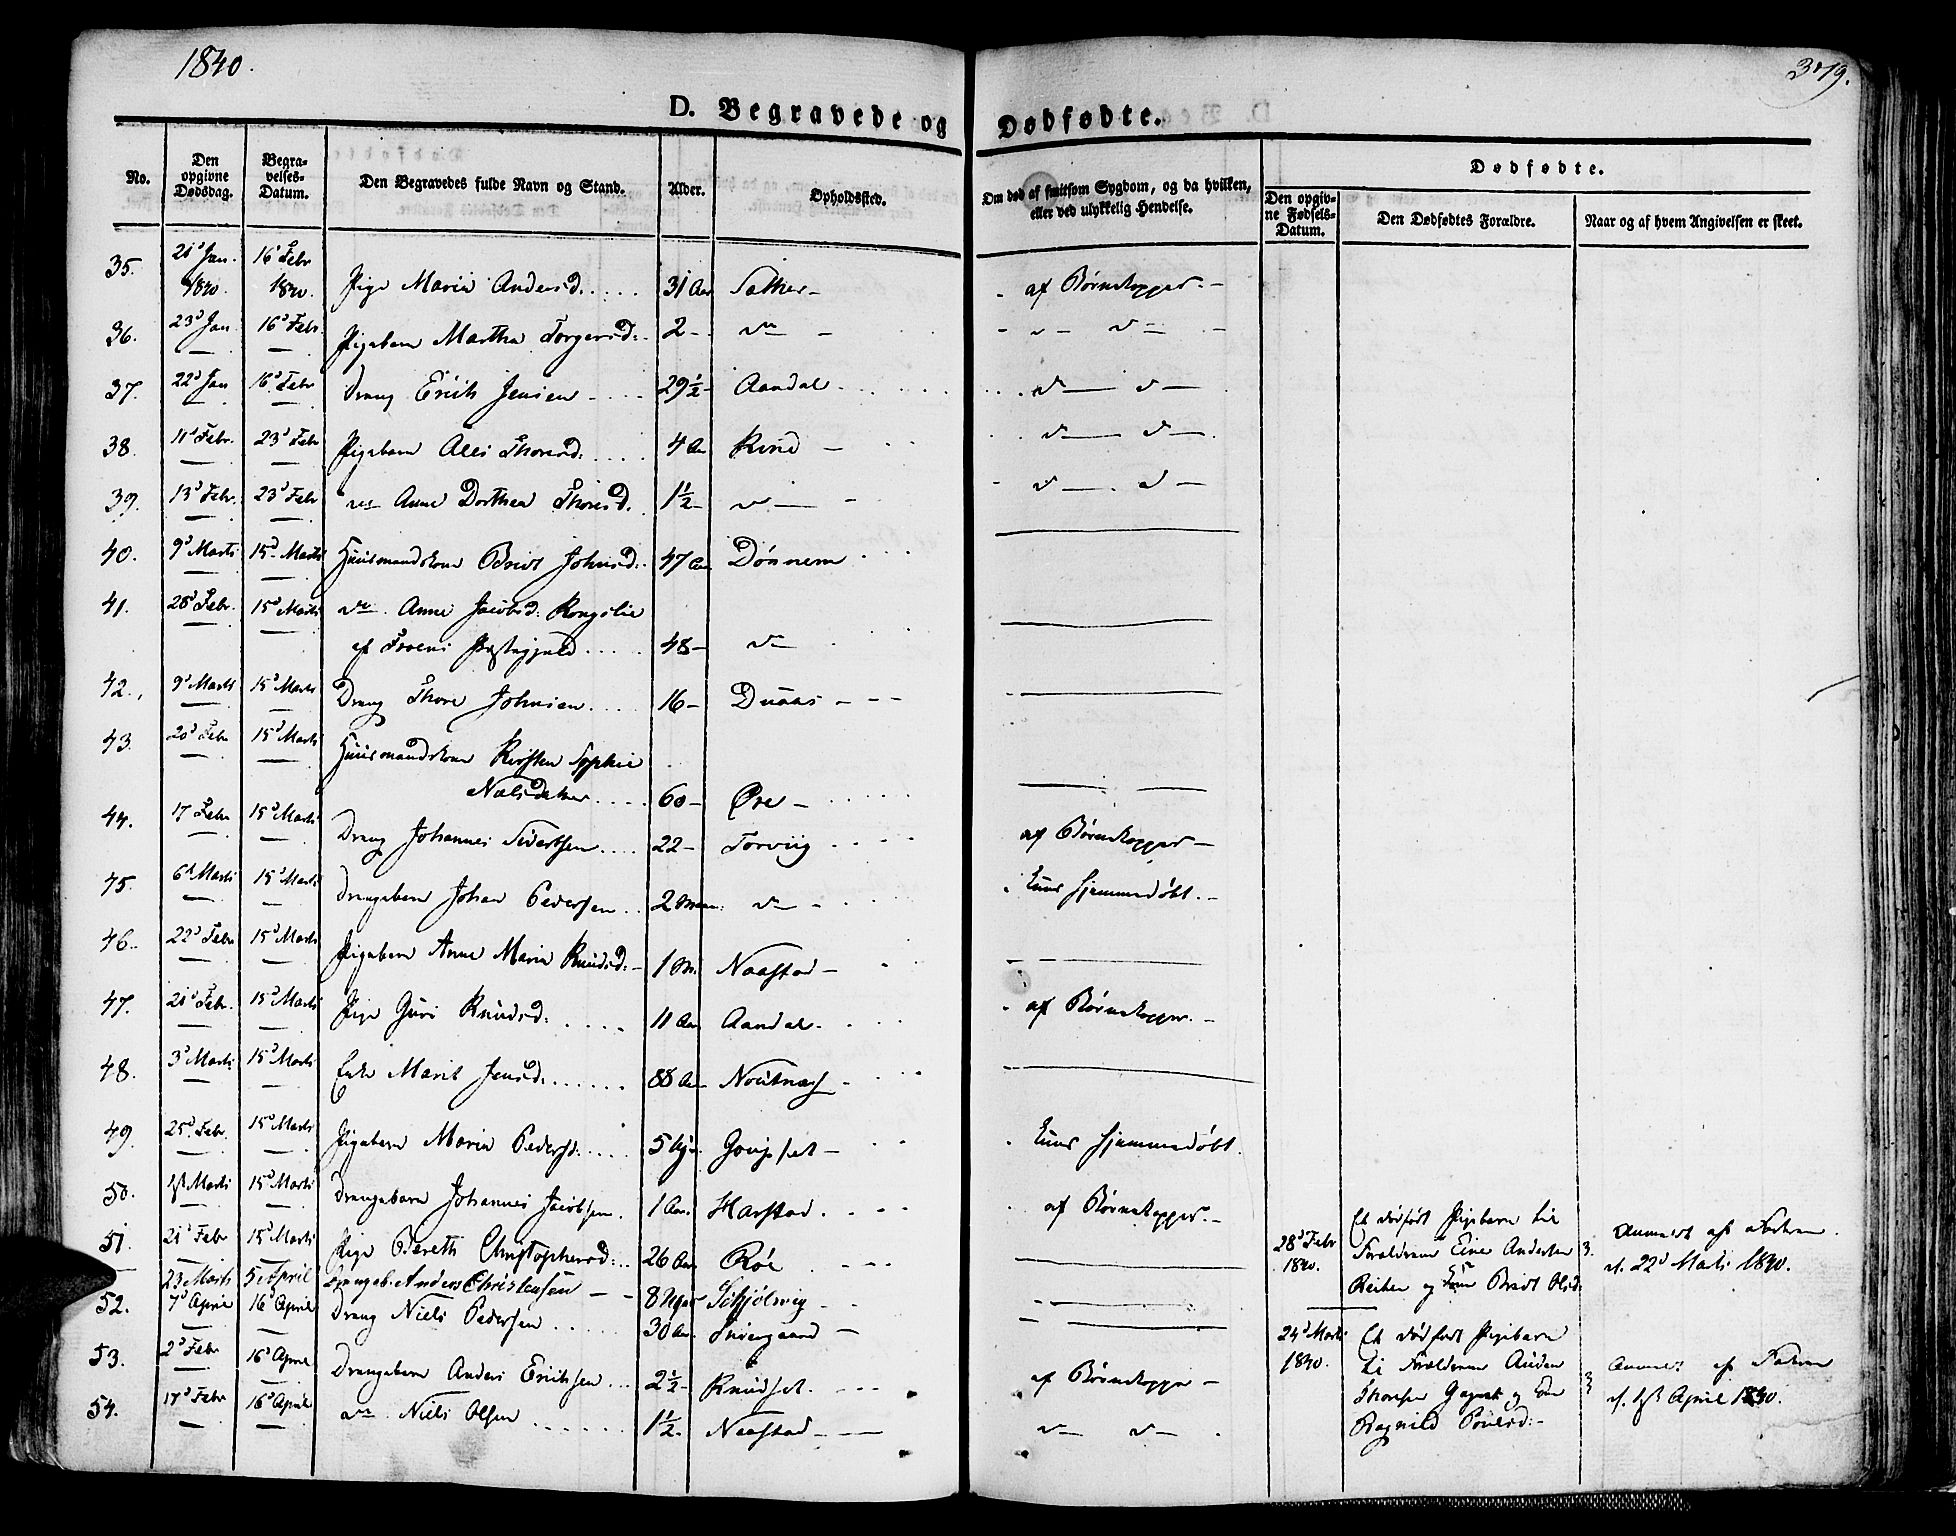 1840.
379.
D. Begravede og Dødfødte.
No.
Den opgivne Dødsdag.
Begravelses-Datum.
Den Begravedes fulde Navn og Stand.
Alder.
Opholdssted.
Om død af smitsom Sygdom, og da hvilken, eller ved ulykkelig Hendelse.
Dødfødte.
Den opgivne Fødsels-Datum.
Den Dødfødtes Forældre.
Naar og af hvem Angivelsen er skeet.
35. 21d Jan. 1840. 16d Febr 1840. Pige Maria Andersd. 31 Aar Sather af Børnekopper.
36. 23d Jan 16d Febr. Pigebarn Martha Torgersd: 2 do do do
37. 22d Jan 16d Febr Dreng Erich Jensen 29½ Aandal do do
38. 11d Febr. 23d Febr Pigebarn Thoresd: 4 Aar do do
39. 13d Febr. 23d Febr do Anne Dorthea Thoresd. 1½ do do do
40. 9d Marts 15d Marts Huusmandskone Brit Johnsd: 47 Aar Dønnem
41. 28d Febr. 15d Marts do Anne Jacobsd: Kongslie
af Præstegjeld 48 do
42. 9d Marts 15d Marts Dreng Thore Johnsen 16 Duaas
43. 20d Febr 15d Marts Huusmandskone Kirsten Sophie
Nielsdatter 60 Øre
44. 17 Febr 15d Marts Dreng Johannes Sivertsen 22 Torvig af Børnekopper
45. 6d Marts 15d Marts Drengebarn Johan Pedersen 2 do kuns hjemmedøbt.
46. 22d Febr 15d Marts Pigebarn Anne Maria Knudsd: 1 M. Naastad
47. 21d Febr. 15d Marts Pige Guri Knudsd: 11 Aar Aandal af Børnekopper.
48. 3d Marts 15d Marts Enke Marit Jensd: 88 Aar
49. 25d Febr. 15d Marts Pigebarn Maria Pedersd: 5 kuns hjemmedøbt.
50. Marts 15d Marts Drengebarn Johannes Jacobsen. 1 Aar. Harstad af Børnekopper.
51. 21d Febr 15d Marts Pige Bereth Christophersd: 26 Aar Røe
23 Marts 5 April Drengeb: Anders Christensen 8 Skjølvig
52. 7d April 16d April Dreng Niels Pedersen 30 Aar
53. 2d Febr 16d April Drengebarn Anders Erichsen 2½ Knudset. af Børnekopper
54. 17d Febr 16d April do Niels Olsen 1½. Naastad do do
28d Febr 1840. Et dødfødt Pigebarn til
Forældrene Andersen
og Kone Bridt Olsd: Anmeldt af Fadren
d. 22d Marts 1840.
24d Marts 1840. Et dødfødt Pigebarn
til Forældrene
Thoresen og Kone
Ragnild Anmeldt af Fadren
d. April 1840.